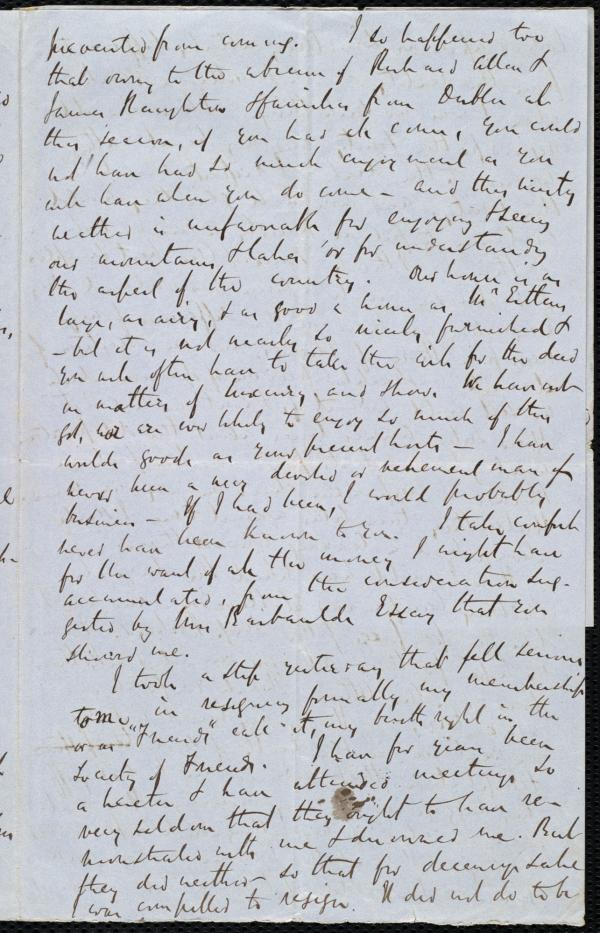 prevented from coming. It so happened too
that owing to the absence of Richard Allen &
James Haughton & families from Dublin at
this season, if you had come, you could
not have had so much enjoyment as you
will have when you do come - and this wintry
weather is unfavourable for enjoying & seeing
our mountains & lakes or for understanding
the aspect of the country. Our house is as
large, as airy, & as good a house as Mr Estlins
- but it is not nearly so nicely furnished &
you will often have to take the will for the deed
in matters of luxury and show. We have not
got, nor are we likely to enjoy so much of this
worlds goods as your present hosts - I have
never been a very devoted or vehement man of
business - If I had been, I would probably
never have been known to you. I take comfort
for the want of all the money I might have
accumulated, from the consideration sug-
gested by Mrs Barbaulds Essay that you
showed me.
I took a step yesterday that felt serious
to me, in resigning formally my membership
or as "Friends" call it, my birthright in the
Society of Friends. I have for years been
a heretic & have attended meetings so
very seldom that they ought to have re-
monstrated with me & disowned me. But
they did neither - so that for decency sake
I was compelled to resign. It did not do to be